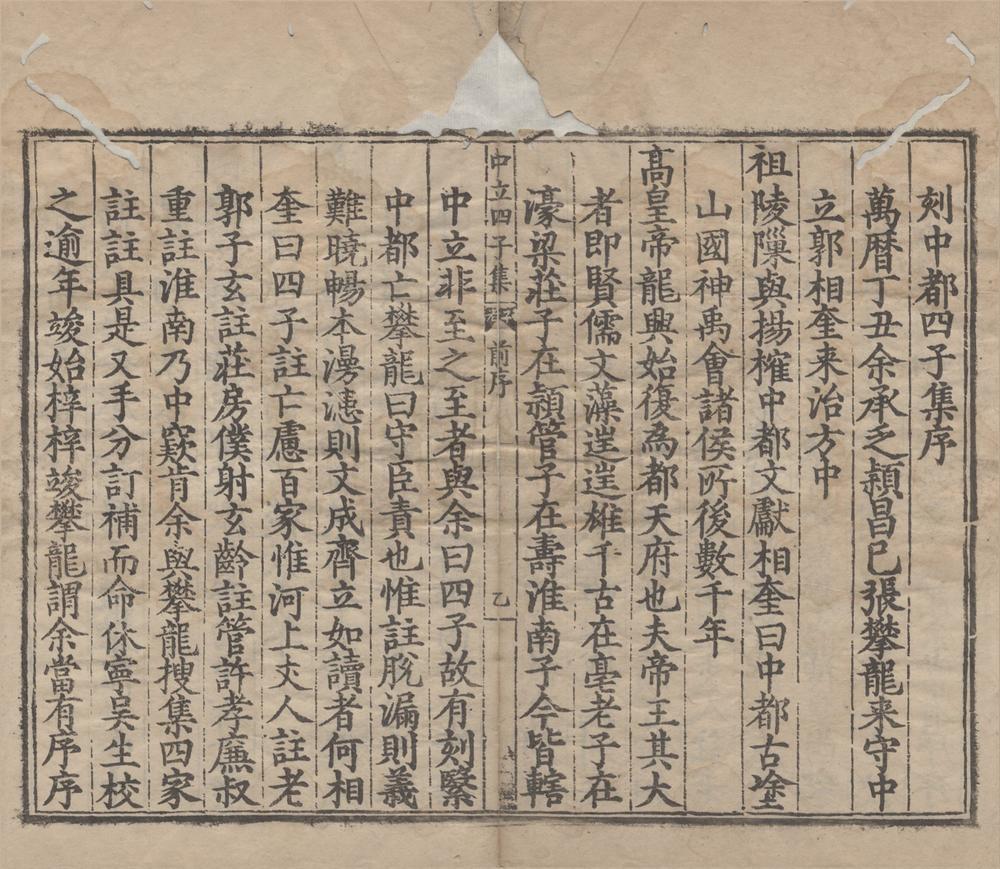 刻中都四子集序
萬曆丁丑余承乏潁昌已張攀龍来守中
立郭相奎来治方中
祖陵隟與揚榷中都文獻相奎曰中都古塗
山國神禹會諸侯所後數千年
高皇帝龍興始復爲都天府也夫帝王其大
者即賢儒文藻逞逞雄千古在亳老子在
濠梁莊子在潁管子在壽淮南子今皆轄
中立四子集 前序 乙
中立非至之至者與余曰四子故有刻緊
中都亡攀龍曰守臣責也惟註脫漏則義
難曉暢本漫漶則文成齊立如讀者何相
奎曰四子註亡慮百家惟河上丈人註老
郭子玄註莊房僕射玄齡註管許孝廉叔
重註淮南乃中窾肯余與攀龍搜集四家
註註具是又手分訂補而命休寧吳生校
之逾年竣始梓梓竣攀龍謂余當有序序